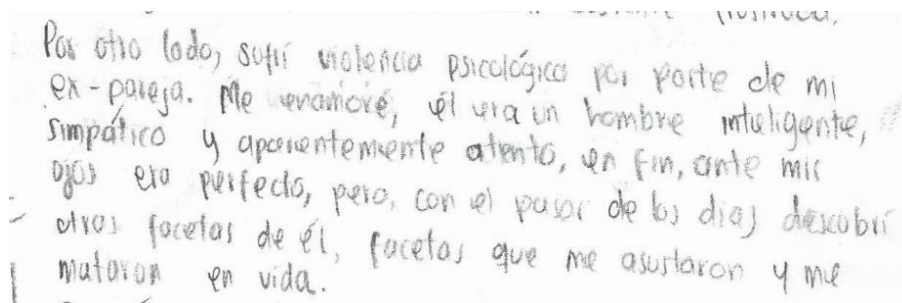 Por otro lado, sufrí violencia psicológica por parte de mi
ex-pareja. Me enamoré, él era un hombre inteligente,
simpático y aparentemente atento, en fin, ante mis
ojos era perfecto, pero, con el pasar de los días descubrí
otras facetas de él, facetas que me asustaron y me
mataron en vida.